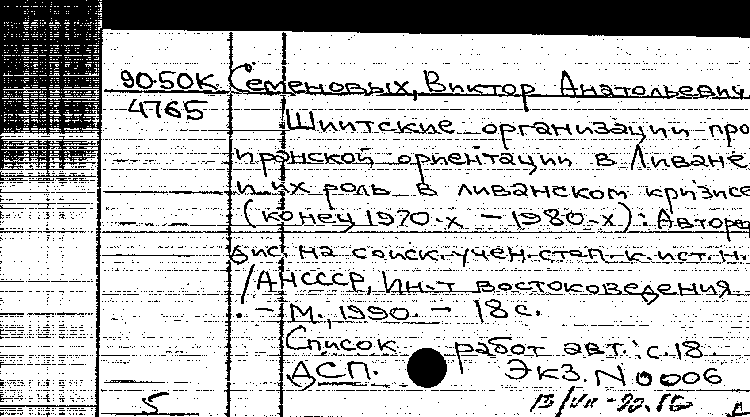 90-50К Семеновых, Виктор Анатольевич
4765
Шиитские организации про
иранской ориентации в Ливане
и их роль в ливанском кризисе
(конец 1970-х – 1980-х): Авторе
дис. на соиск. учен. степ. к. ист. н.
/АН СССР, Ин-т востоковедения
. – М., 1990. – 18 с.
Список работ авт.: с. 18.
ДСП. Экз. N 0006
5